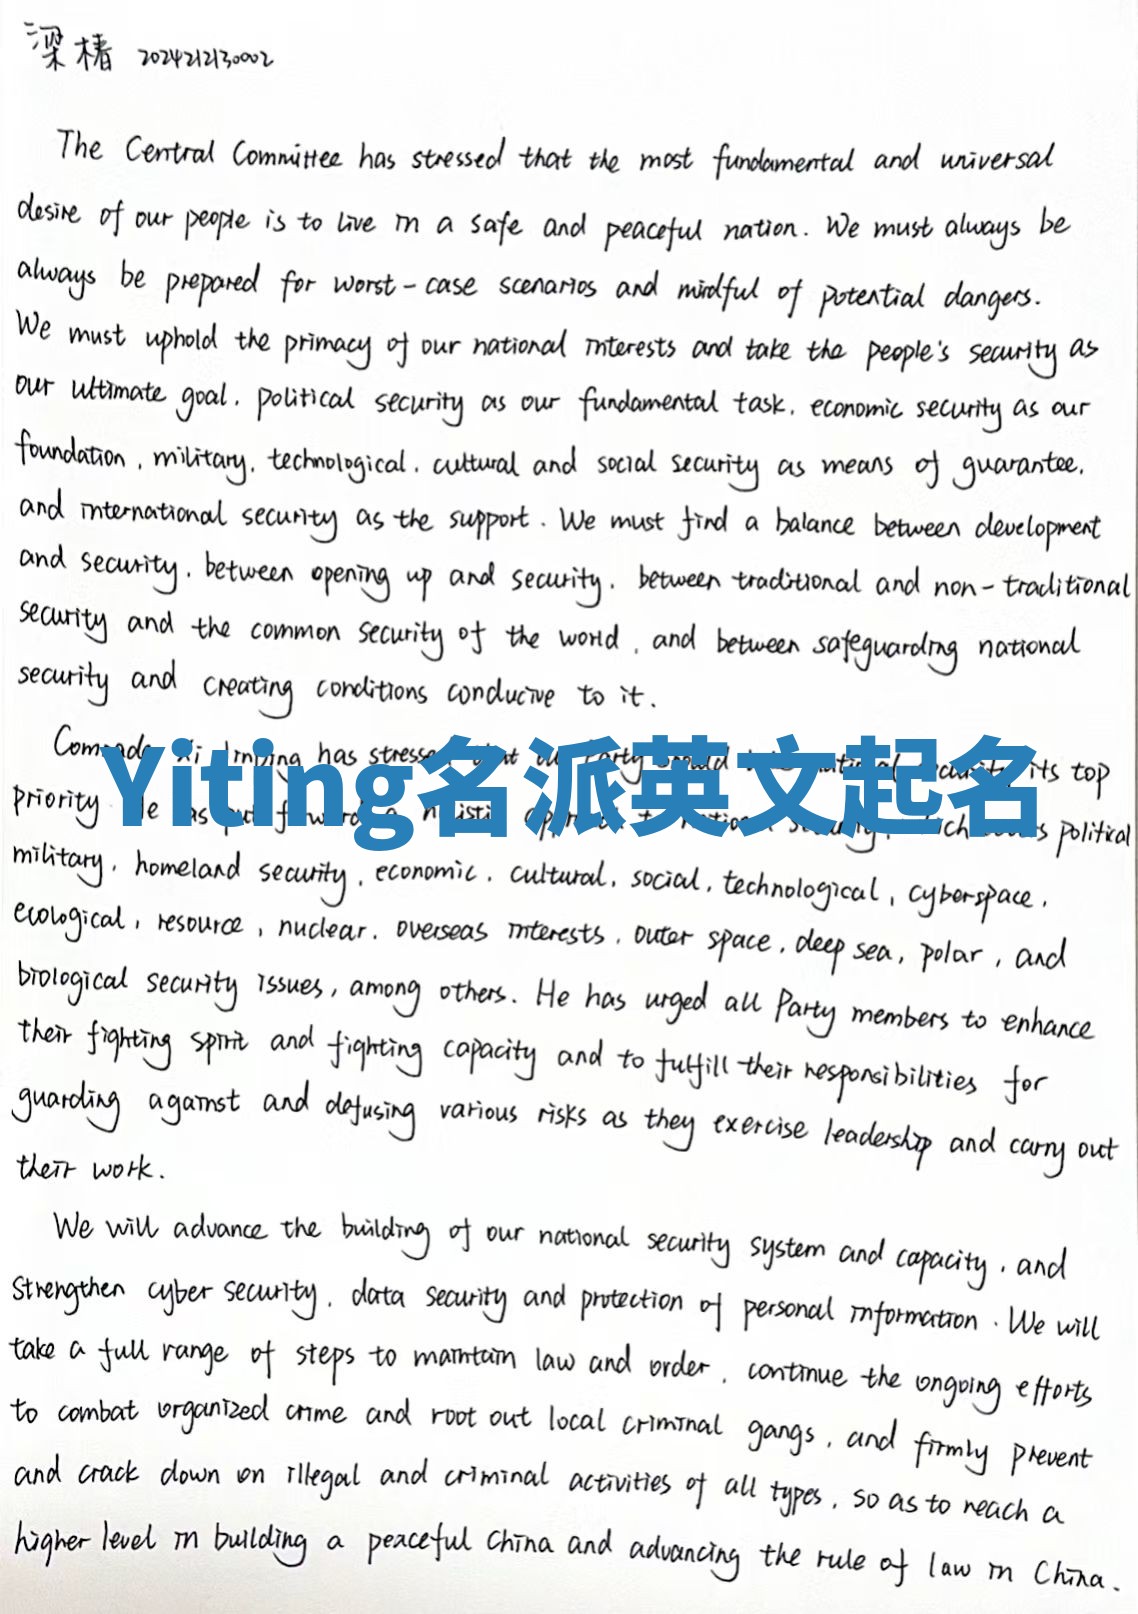 梁椿 2024212130002
The Central Committee has stressed that the most fundamental and universal
desire of our people is to live in a safe and peaceful nation. We must always be
always be prepared for worst-case scenarios and mindful of potential dangers.
We must uphold the primacy of our national interests and take the people's security as
our ultimate goal, political security as our fundamental task, economic security as our
foundation, military, technological, cultural and social security as means of guarantee,
and international security as the support. We must find a balance between development
and security, between opening up and security, between traditional and non-traditional
security and the common security of the world, and between safeguarding national
security and creating conditions conducive to it.
has its top
Yiting名派英文起名
priority political
military, homeland security, economic, cultural, social, technological, cyberspace,
ecological, resource, nuclear, overseas interests, outer space, deep sea, polar, and
biological security issues, among others. He has urged all Party members to enhance
their fighting spirit and fighting capacity and to fulfill their responsibilities for
guarding against and defusing various risks as they exercise leadership and carry out
their work.
We will advance the building of our national security system and capacity, and
strengthen cyber security, data security and protection of personal information. We will
take a full range of steps to maintain law and order, continue the ongoing efforts
to combat organized crime and root out local criminal gangs, and firmly prevent
and crack down on illegal and criminal activities of all types, so as to reach a
higher level in building a peaceful China and advancing the rule of law in China.